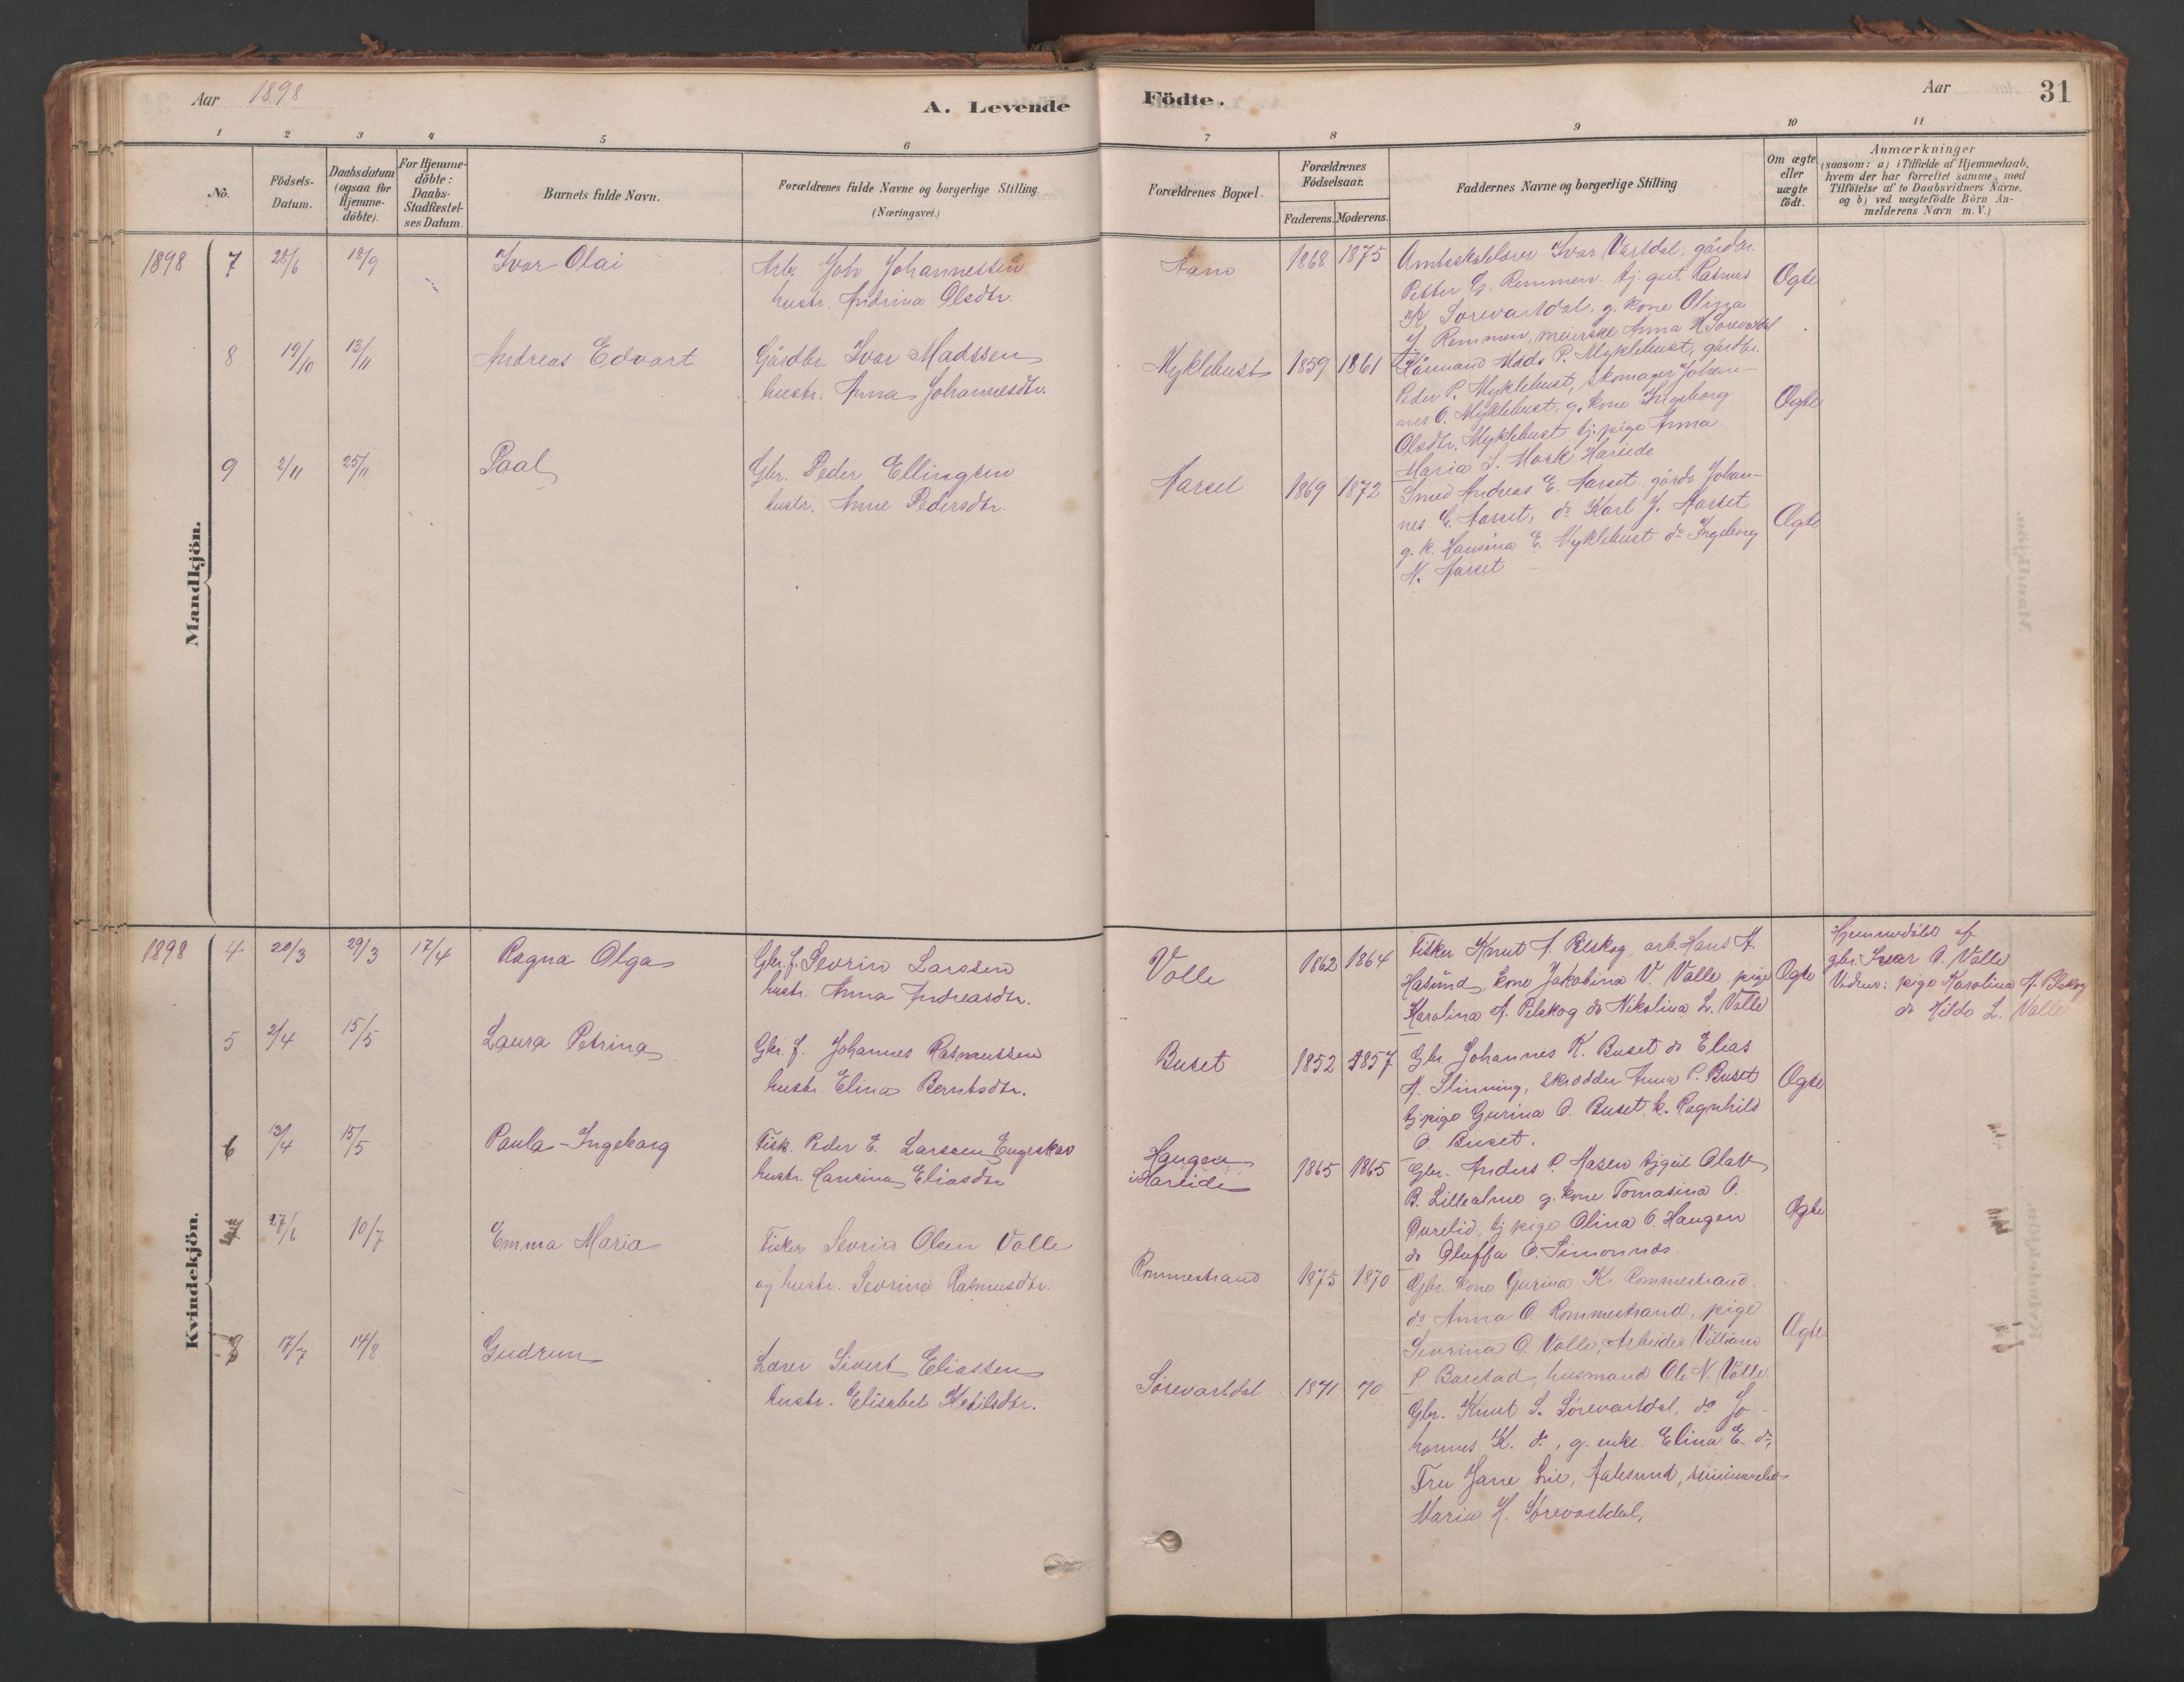 Aar 1898
A. Levende
Födte.
Aar
31
1 2 3 4 5 6 7 8 9 10 11
No.
Födsels-
Datum.
Daabsdatum
(ogsaa for
Hjemme-
döbte).
For Hjemme-
döbte:
Daabs-
Stadfæstel-
ses Datum
Barnets fulde Navn.
Forældrenes fulde Navne og borgerlige Stilling.
(Næringsvei.)
Forældrenes Bopæl.
Forældrenes
Födselsaar.
Faderens. Moderens.
Faddernes Navne og borgerlige Stilling
Om ægte
eller
uægte
födt.
Anmærkninger
(saasom: a) i Tilfælde af Hjemmedaab,
hvem der har forrettet samme, med
Tilföielse af to Daabsvidners Navne.
og b) ved uægtefödte Börn An-
melderens Navn m. V.)
Mandkjön.
1898 7 28/6 18/9 Ivar Olai
Arb. Joh Johannessen
hustr. Andrina Olsdtr.
1868 1875
Amtskolelærer Ivar Vartdal, gårdbr.
Petter G. Remmen tj. gut Rasmus
K. Sorevartdal, g. kone Olina
J. Remmen, meierske Anna K Sorevartdal
Ægte
8 19/10 13/11 Andreas Edvart
Gårdbr. Ivar Madssen
hustr. Anna Johannesdtr.
Myklebust 1859 1861
Kårmand Mads P. Myklebust, gårdbr.
Peder P. Myklebust, skomager Johan-
nes O. Myklebust, g. kone Ingeborg
Olsdtr. Myklebust tj. pige Anna
Maria S. Mork Hareide
Ægte
9 2/11 25/11 Paal
Gbr. Peder Ellingsen
hustr. Anne Pedersdtr.
Aarset 1869 1872
Smed Andreas E. Aarset gårdb Johan-
nes E. Aarset, do Karl J. Aarset
g. k. Hansina E. Myklebust do Ingeborg
N. Aarset
Ægte
Kvindekjön.
1898 4 20/3 29/3 17/4 Ragna Olga
Gbr. f. Sevrin Larssen
hustr. Anna Andreasdtr.
Valle 1862 1864
Fisker Knut A. Pilskog, arb. Hans A.
Hasund, kone Jakobina V. Valle pige
Karolina A. Pilskog do Nikolina L. Valle
Ægte
Hjemmedöbt af
gbr. Ivar O. Valle
Vidner: pige Karolina A. Pilskog
do Hilda L. Valle
5 2/4 15/5 Laura Petrina
Gbr. f. Johannes Rasmussen
hustr. Elina Berntsdtr.
Buset 1852 1857
Gbr Johannes K. Buset do Elias
A. Slinning, skrædder Anna P. Buset
tj pige Gurina O. Buset, k. Ragnhild
O. Buset.
Ægte
6 13/4 15/5 Paula-Ingeborg
Fisk. Peder E. Larssen Engeskar
hustr. Hansina Eliasdtr
Haugen
i Hareide
1865 1865
Gbr. Anders P. Aasen tjgut Olav
B. Lillealme g. kone Tomasina O.
Overlid, tj pige Olina O. Haugen
do Oluffa O. Simonnes.
Ægte
7 27/6 10/7 Emma Maria
Fisker Sevrin Olsen Valle
og hustr. Sevrina Rasmusdtr.
Rommestrand 1875 1870
Gbr. kone Gurina K. Rommestrand,
do Anna O Rommestrand, pige
Sevrina O Valle, Arbeider Villiam
P Baustad, husmand Ole N. Valle
Ægte
8 17/7 14/8 Gudrun
Lærer Sivert Eliassen
hustr. Elisabet Ketilsdtr.
Sörevartdal 1871 70
Gbr. Knut S. Sörevartdal, do Jo-
hannes K. do, g. enke Elina E. do,
Fru Jane Lie, Aalesund,
Maria H. Sörevartdal,